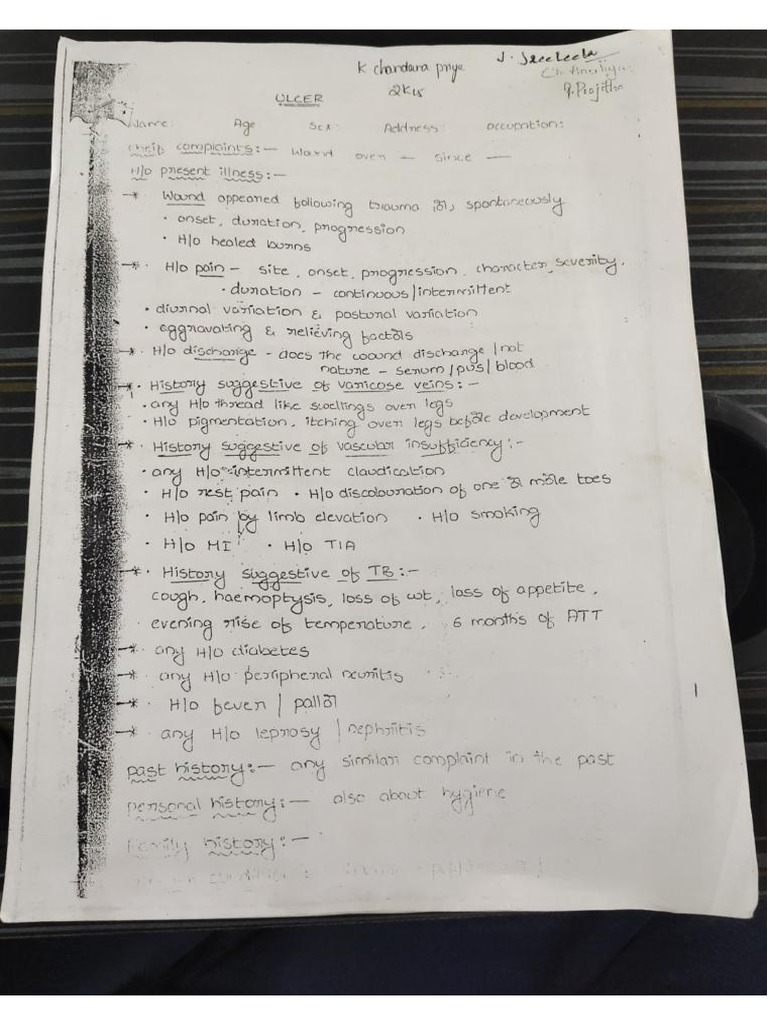 K chandara priya
2K18
ULCER
Name: Age Sex: Address: occupation:
cheif complaints:- Wound over — since —
H/o present illness:-
* Wound appeared following trauma (or) spontaneously
• onset, duration, progression
• H/o healed burns
* H/o pain - site, onset, progression, character, severity.
• duration - continuous/intermittent
• diurnal variation & postural variation
• aggravating & relieving factors
* H/o discharge - does the wound discharge/not
nature - serum/pus/blood
* • History suggestive of varicose veins:-
• any H/o thread like swellings over legs
• H/o pigmentation, itching over legs before development
* • History suggestive of vascular insufficiency:-
• any H/o intermittent claudication
• H/o rest pain • H/o discolouration of one or more toes
• H/o pain by limb elevation • H/o smoking
• H/o MI • H/o TIA
* • History suggestive of TB:-
cough, haemoptysis, loss of wt, loss of appetite,
evening rise of temperature, 6 months of ATT
* any H/o diabetes
* any H/o peripheral neuritis
* H/o fever / pallor
* any H/o leprosy / nephritis
past history:- any similar complaint in the past
personal history:- also about hygiene
Family history:-